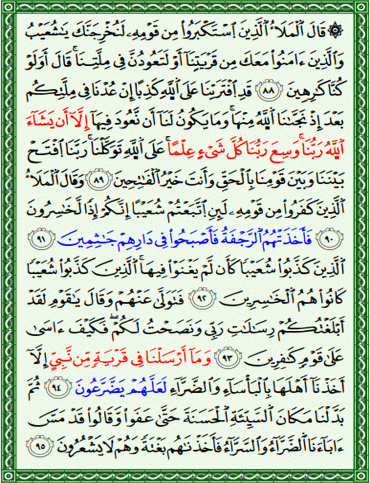 ۞ قَالَ ٱلْمَلَأُ ٱلَّذِينَ ٱسْتَكْبَرُوا۟ مِن قَوْمِهِۦ لَنُخْرِجَنَّكَ يَٰشُعَيْبُ
وَٱلَّذِينَ ءَامَنُوا۟ مَعَكَ مِن قَرْيَتِنَآ أَوْ لَتَعُودُنَّ فِى مِلَّتِنَا ۚ قَالَ أَوَلَوْ
كُنَّا كَٰرِهِينَ ٨٨ قَدِ ٱفْتَرَيْنَا عَلَى ٱللَّهِ كَذِبًا إِنْ عُدْنَا فِى مِلَّتِكُم
بَعْدَ إِذْ نَجَّىٰنَا ٱللَّهُ مِنْهَا ۚ وَمَا يَكُونُ لَنَآ أَن نَّعُودَ فِيهَآ إِلَّآ أَن يَشَآءَ
ٱللَّهُ رَبُّنَا ۚ وَسِعَ رَبُّنَا كُلَّ شَىْءٍ عِلْمًا ۚ عَلَى ٱللَّهِ تَوَكَّلْنَا ۚ رَبَّنَا ٱفْتَحْ
بَيْنَنَا وَبَيْنَ قَوْمِنَا بِٱلْحَقِّ وَأَنتَ خَيْرُ ٱلْفَٰتِحِينَ ٨٩ وَقَالَ ٱلْمَلَأُ
ٱلَّذِينَ كَفَرُوا۟ مِن قَوْمِهِۦ لَئِنِ ٱتَّبَعْتُمْ شُعَيْبًا إِنَّكُمْ إِذًا لَّخَٰسِرُونَ
٩٠ فَأَخَذَتْهُمُ ٱلرَّجْفَةُ فَأَصْبَحُوا۟ فِى دَارِهِمْ جَٰثِمِينَ ٩١
ٱلَّذِينَ كَذَّبُوا۟ شُعَيْبًا كَأَن لَّمْ يَغْنَوْا۟ فِيهَا ۚ ٱلَّذِينَ كَذَّبُوا۟ شُعَيْبًا
كَانُوا۟ هُمُ ٱلْخَٰسِرِينَ ٩٢ فَتَوَلَّىٰ عَنْهُمْ وَقَالَ يَٰقَوْمِ لَقَدْ
أَبْلَغْتُكُمْ رِسَٰلَٰتِ رَبِّى وَنَصَحْتُ لَكُمْ ۖ فَكَيْفَ ءَاسَىٰ
عَلَىٰ قَوْمٍ كَٰفِرِينَ ٩٣ وَمَآ أَرْسَلْنَا فِى قَرْيَةٍ مِّن نَّبِىٍّ إِلَّآ
أَخَذْنَآ أَهْلَهَا بِٱلْبَأْسَآءِ وَٱلضَّرَّآءِ لَعَلَّهُمْ يَضَّرَّعُونَ ٩٤ ثُمَّ
بَدَّلْنَا مَكَانَ ٱلسَّيِّئَةِ ٱلْحَسَنَةَ حَتَّىٰ عَفَوا۟ وَّقَالُوا۟ قَدْ مَسَّ
ءَابَآءَنَا ٱلضَّرَّآءُ وَٱلسَّرَّآءُ فَأَخَذْنَٰهُم بَغْتَةً وَهُمْ لَا يَشْعُرُونَ ٩٥